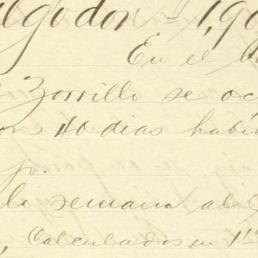 lgodon - 1,90
En el
Zorrillo se oc
on 40 dias habi
jo.
la semana al
, Calculados en 1